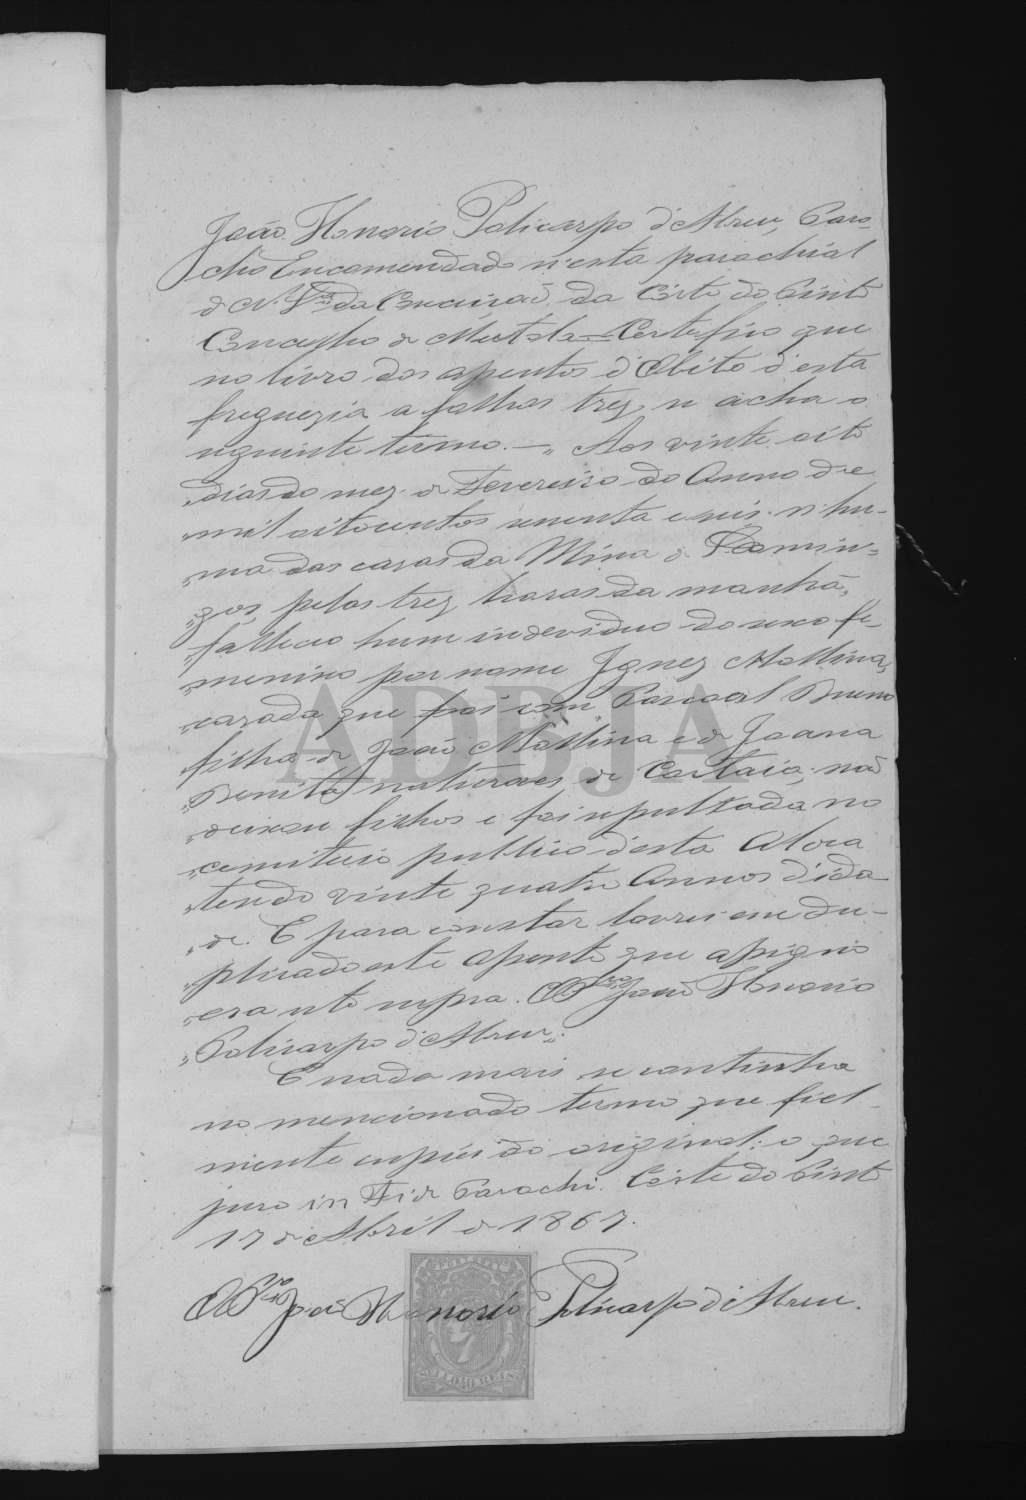 João Honorio Policarpo d'Abreu, Paro-
cho Encomendado n'esta parochial
de N. Snra da Conceição da Côrte do Pinto
Concelho de Mertola = Certefico que
no livro dos assentos d'Obito d'esta
freguezia a folhas trez se acha o
seguinte termo. — „ Aos vinte oito
„ dias do mez de Fevereiro do Anno de
„ mil oitocentos sessenta e seis n'hu-
„ ma das casas da Mina de S. Domin-
„ gos, pelas trez horas da manhã,
„ falleceo hum individuo do sexo fe-
„ menino por nome Ignez Mollina,
„ casada que foi com Pascoal Bueno
filha de João Mollina e de Joana
„ Benita naturaes de Cartaia; não
„ deixou filhos e foi sepultada no
„ cemiterio publico desta Aldea
„ tendo vinte quatro Annos d'ida-
„ de. E para constar lavrei em du-
„ plicado este assento que assigno
„ era ut supra. O Pro João Honorio
„ Policarpo d'Abreu „
E nada mais se continha
no mencionado termo que fiel-
mente copiei do original: o que
juro in Fide Parochi. Côrte do Pinto
17 de Abril de 1867.
O Pro João Honorio Policarpo d'Abreu.
ADBJA